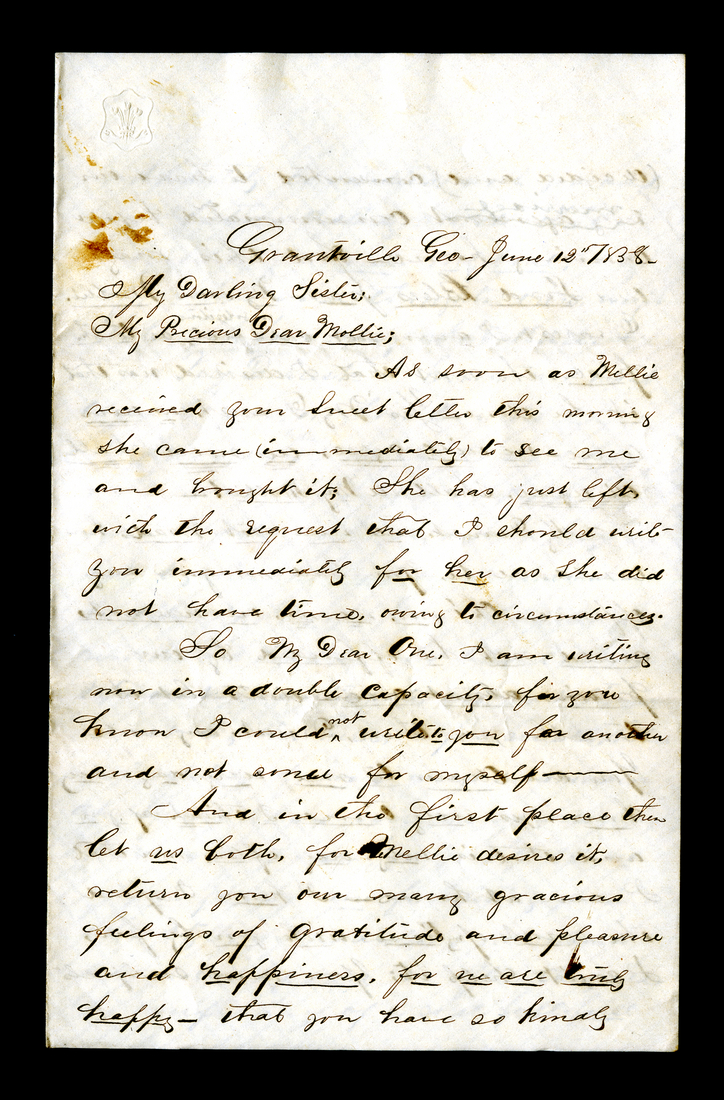 Grantville Geo- June 12"/58-
My Darling Sister;
My Precious Dear Mollie;
As soon as Mellie
received your sweet letter this morning
she came (immediately) to see me
and brought it; She has just left,
with the request that I should write
you immediately for her as she did
not have time, owing to circumstances.
So My Dear One, I am writing
now in a double capacity, for you
know I could not write to you for another
and not some for myself
And in the first place then
let us both, for Mellie desires it,
return you our many gracious
feelings of gratitude and pleasure
and happiness, for we are truly
happy- that you have so kindly